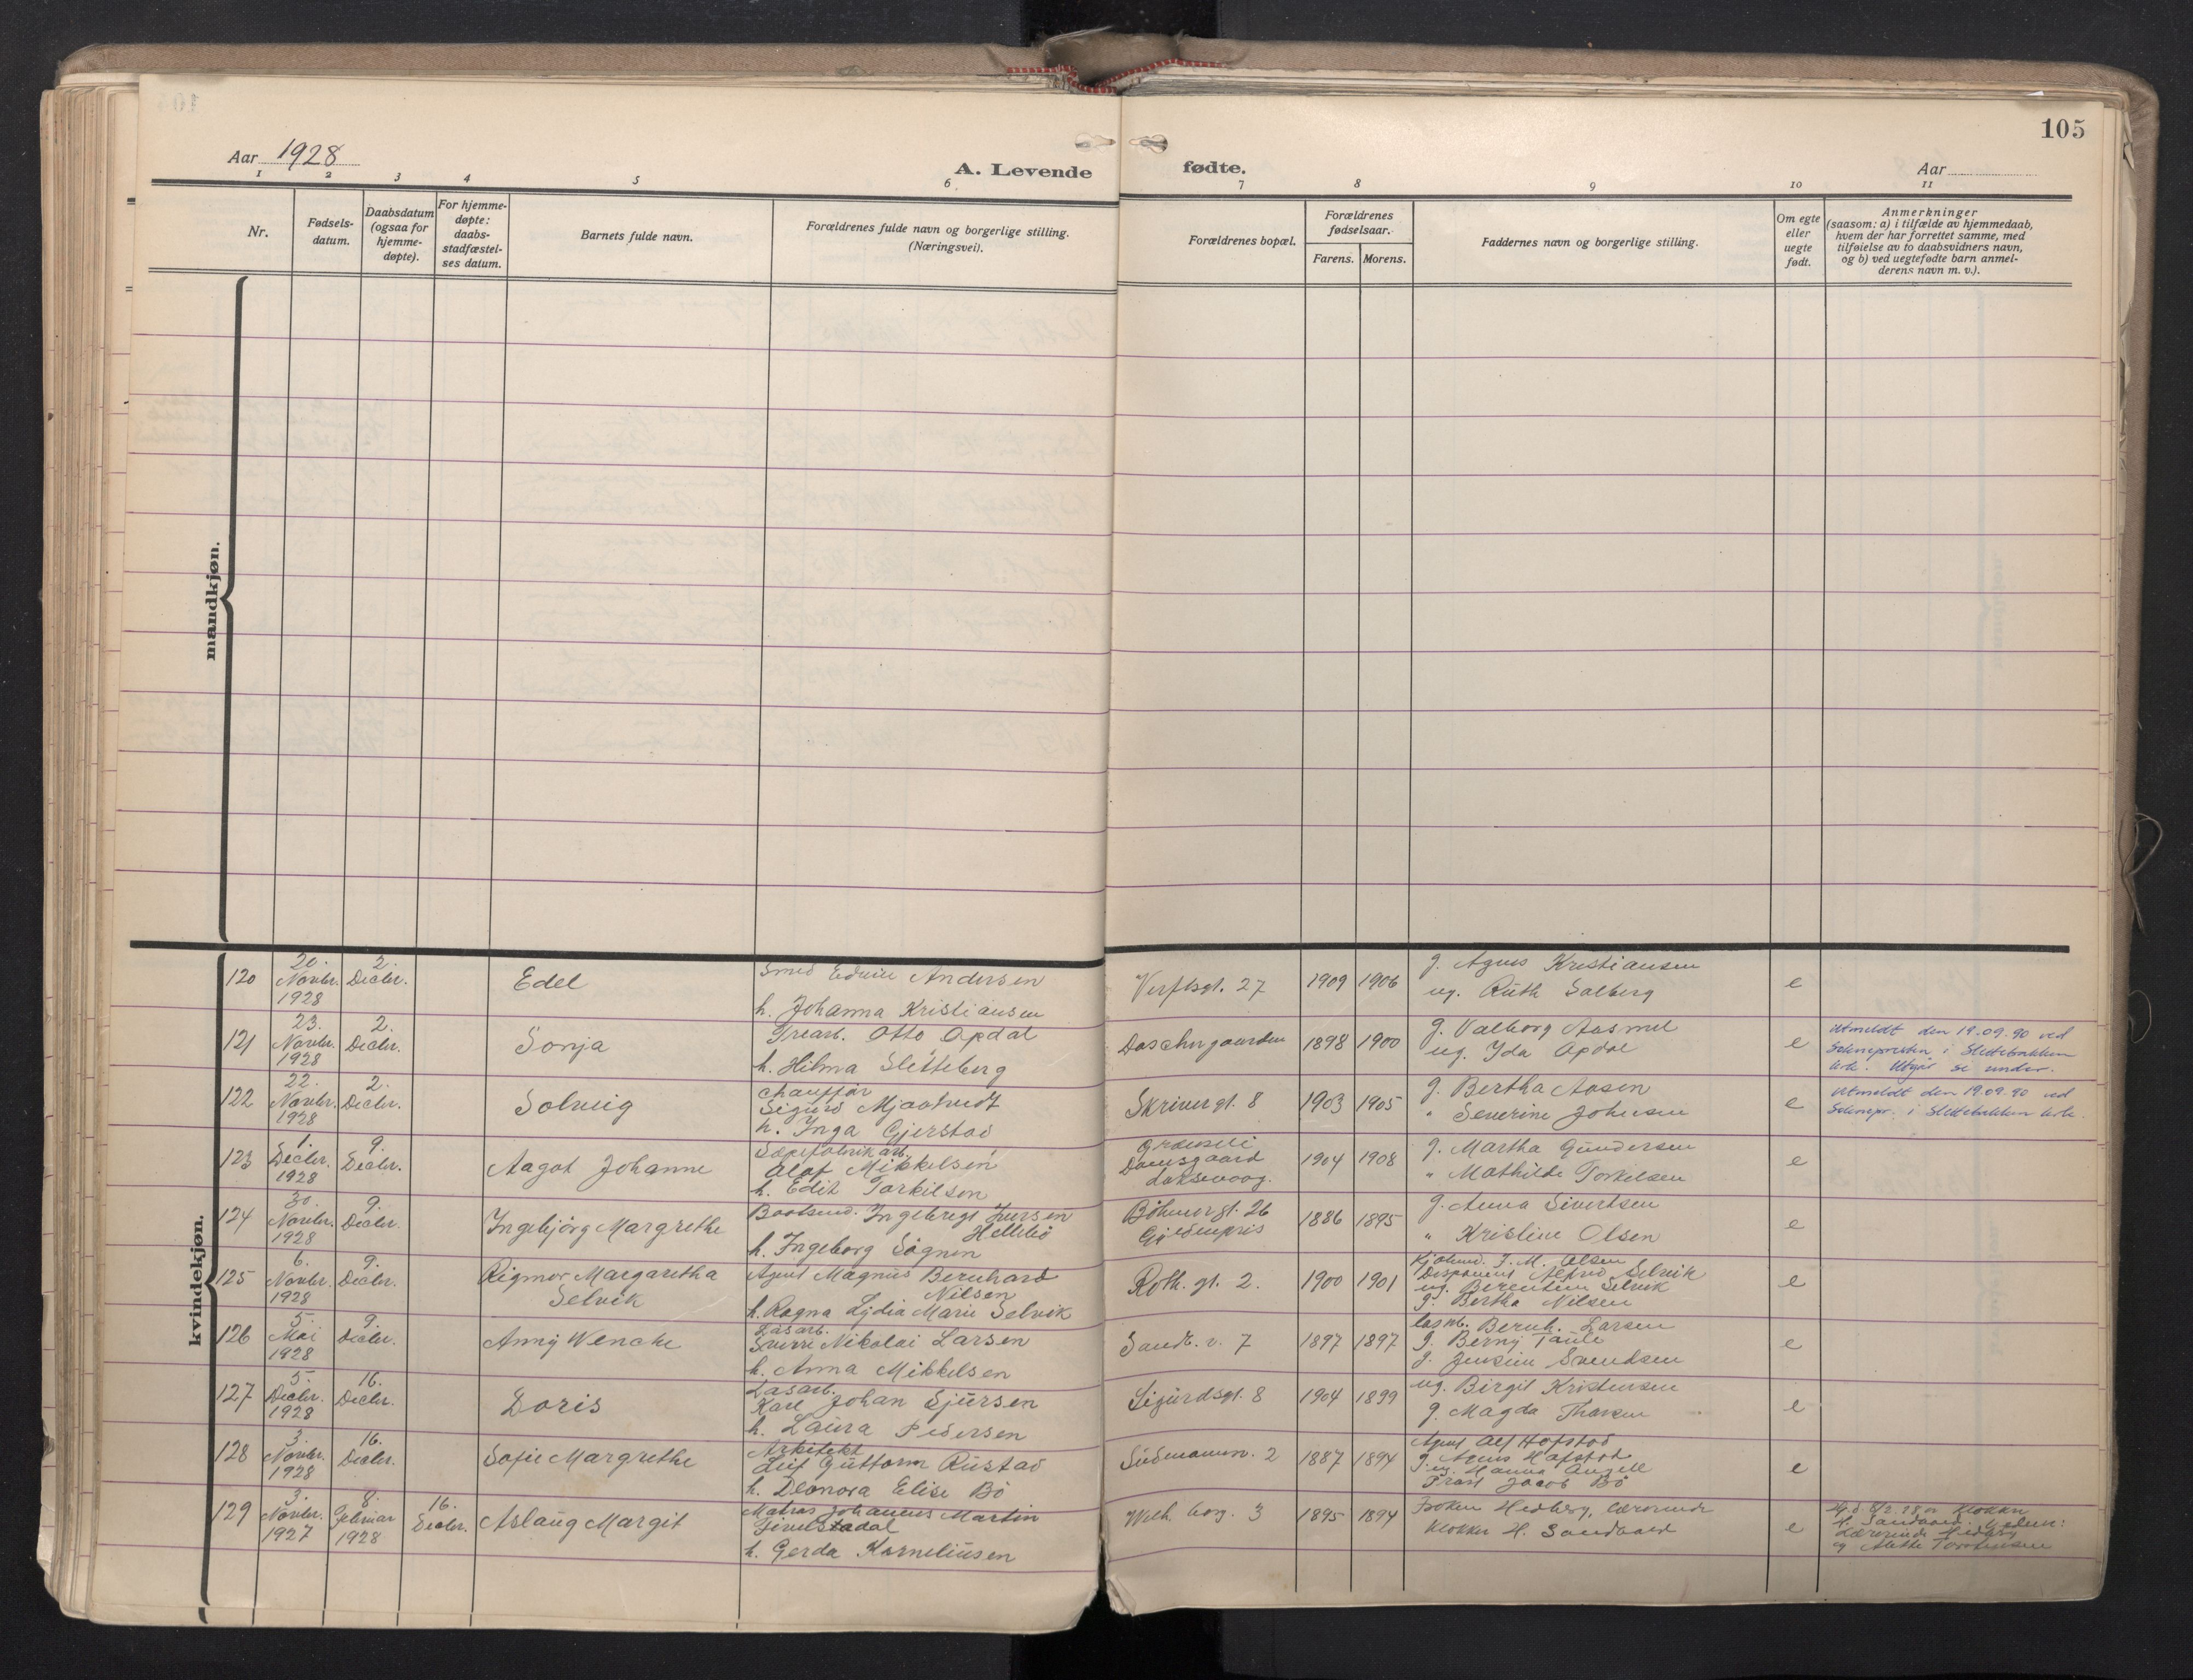 105
Aar 1928
A. Levende fødte.
Aar
1 2 3 4 5 6 7 8 9 10 11
Nr.
Fødsels-
datum.
Daabsdatum
(ogsaa for
hjemme-
døpte).
For hjemme-
døpte:
daabs-
stadfæstel-
ses datum.
Barnets fulde navn.
Forældrenes fulde navn og borgerlige stilling.
(Næringsvei).
Forældrenes bopæl.
Forældrenes
fødselsaar.
Farens. Morens.
Faddernes navn og borgerlige stilling.
Om egte
eller
uegte
født.
Anmerkninger
(saasom: a) i tilfælde av hjemmedaab,
hvem der har forrettet samme, med
tilføielse av to daabsvidners navn,
og b) ved uegtefødte barn anmel-
derens navn m. v.).
mandkjøn.
kvindekjøn.
120
20.
Novbr.
1928
2.
Decbr.
Edel
Smed Edvin Andersen
h. Johanna Kristiansen
Verftsgt. 27
1909 1906
g. Agnes Kristiansen
ug. Ruth Solberg
e
121
23.
Novbr.
1928
2.
Decbr.
Sonja
Trearb. Otto Opdal
h. Hilma Sletteberg
1898 1900
g. Valborg Aasmel
ug. Ida Opdal
e
Utmeldt den 19.09.90 ved
Soknepresten i Slettebakken
122
22.
Novbr.
1928
2.
Decbr.
Solveig
Chauffør
Sigurd Mjaatvedt
h. Inga Gjerstad
Skivergt. 8
1903 1905
g. Bertha Aasen
" Severine Johnsen
e
Utmeldt den 19.09.90 ved
Soknepr. i Slettebakken
123
1.
Decbr.
1928
9.
Decbr.
Aagot Johanne
Sæpefabrikarb.
Olaf Mikkelsen
h. Edit Torkilsen
Damsgaard
Laksevaag.
1904 1908
g. Martha Gundersen
" Mathilde Torkilsen
e
124
30.
Novbr.
1928
9.
Decbr.
Ingebjörg Margrethe
Baatsmd. Ingebrigt Iversen
Hellebö
h. Ingeborg Sögnen
Böhmergt. 26
Gyldenpris
1886 1895
g. Anna Sivertsen
" Kristine Olsen
e
125
6.
Novbr.
1928
9.
Decbr.
Rigmor Margaretha
Selvik
Agent Magnus Bernhard
Nilsen
h. Ragna Lydia Marie Selvik
Roth. gt. 2.
1900 1901
Kjøbmd. J. M. Olsen
Disponent Alfred Selvik
ug. Berentine Selvik
g. Bertha Nilsen
e
126
5.
Mai
1928
9.
Decbr.
Anny Wencke
Løsarb.
Sverre Nikolai Larsen
h. Anna Mikkelsen
Sandb. v. 7
1897 1897
løsarb. Bernh. Larsen
g. Berny Taule
g. Jensine Svendsen
e
127
5.
Decbr.
1928
16.
Decbr.
Doris
Løsarb.
Karl Johan Sjursen
h. Laura Pedersen
Sigurdsgt. 8
1904 1899
ug. Birgit Kristensen
g. Magda
e
128
3.
Novbr.
1928
16.
Decbr.
Sofie Margrethe
Arkitekt
Leif Guttorm Rustad
h. Leonora Elise Bö
Südmannsv. 2
1887 1894
Agent Alf Hofstad
g. Agnes Hofstad
ug. Hanna Angell
Prost Jacob Bö
e
129
3.
Novbr.
1927
8.
Februar
1928
16.
Decbr.
Aslaug Margit
Matros Johannes Martin
h. Gerda Korneliusen
Welh. bog. 3
1895 1894
Froken Hedberg, lærerinde
Klokker H. Sandaard
e
Hj.d. 8/2 28 av Klokker
H. Sandaard.
Lærerinde Hedberg
og Alette Torstensen